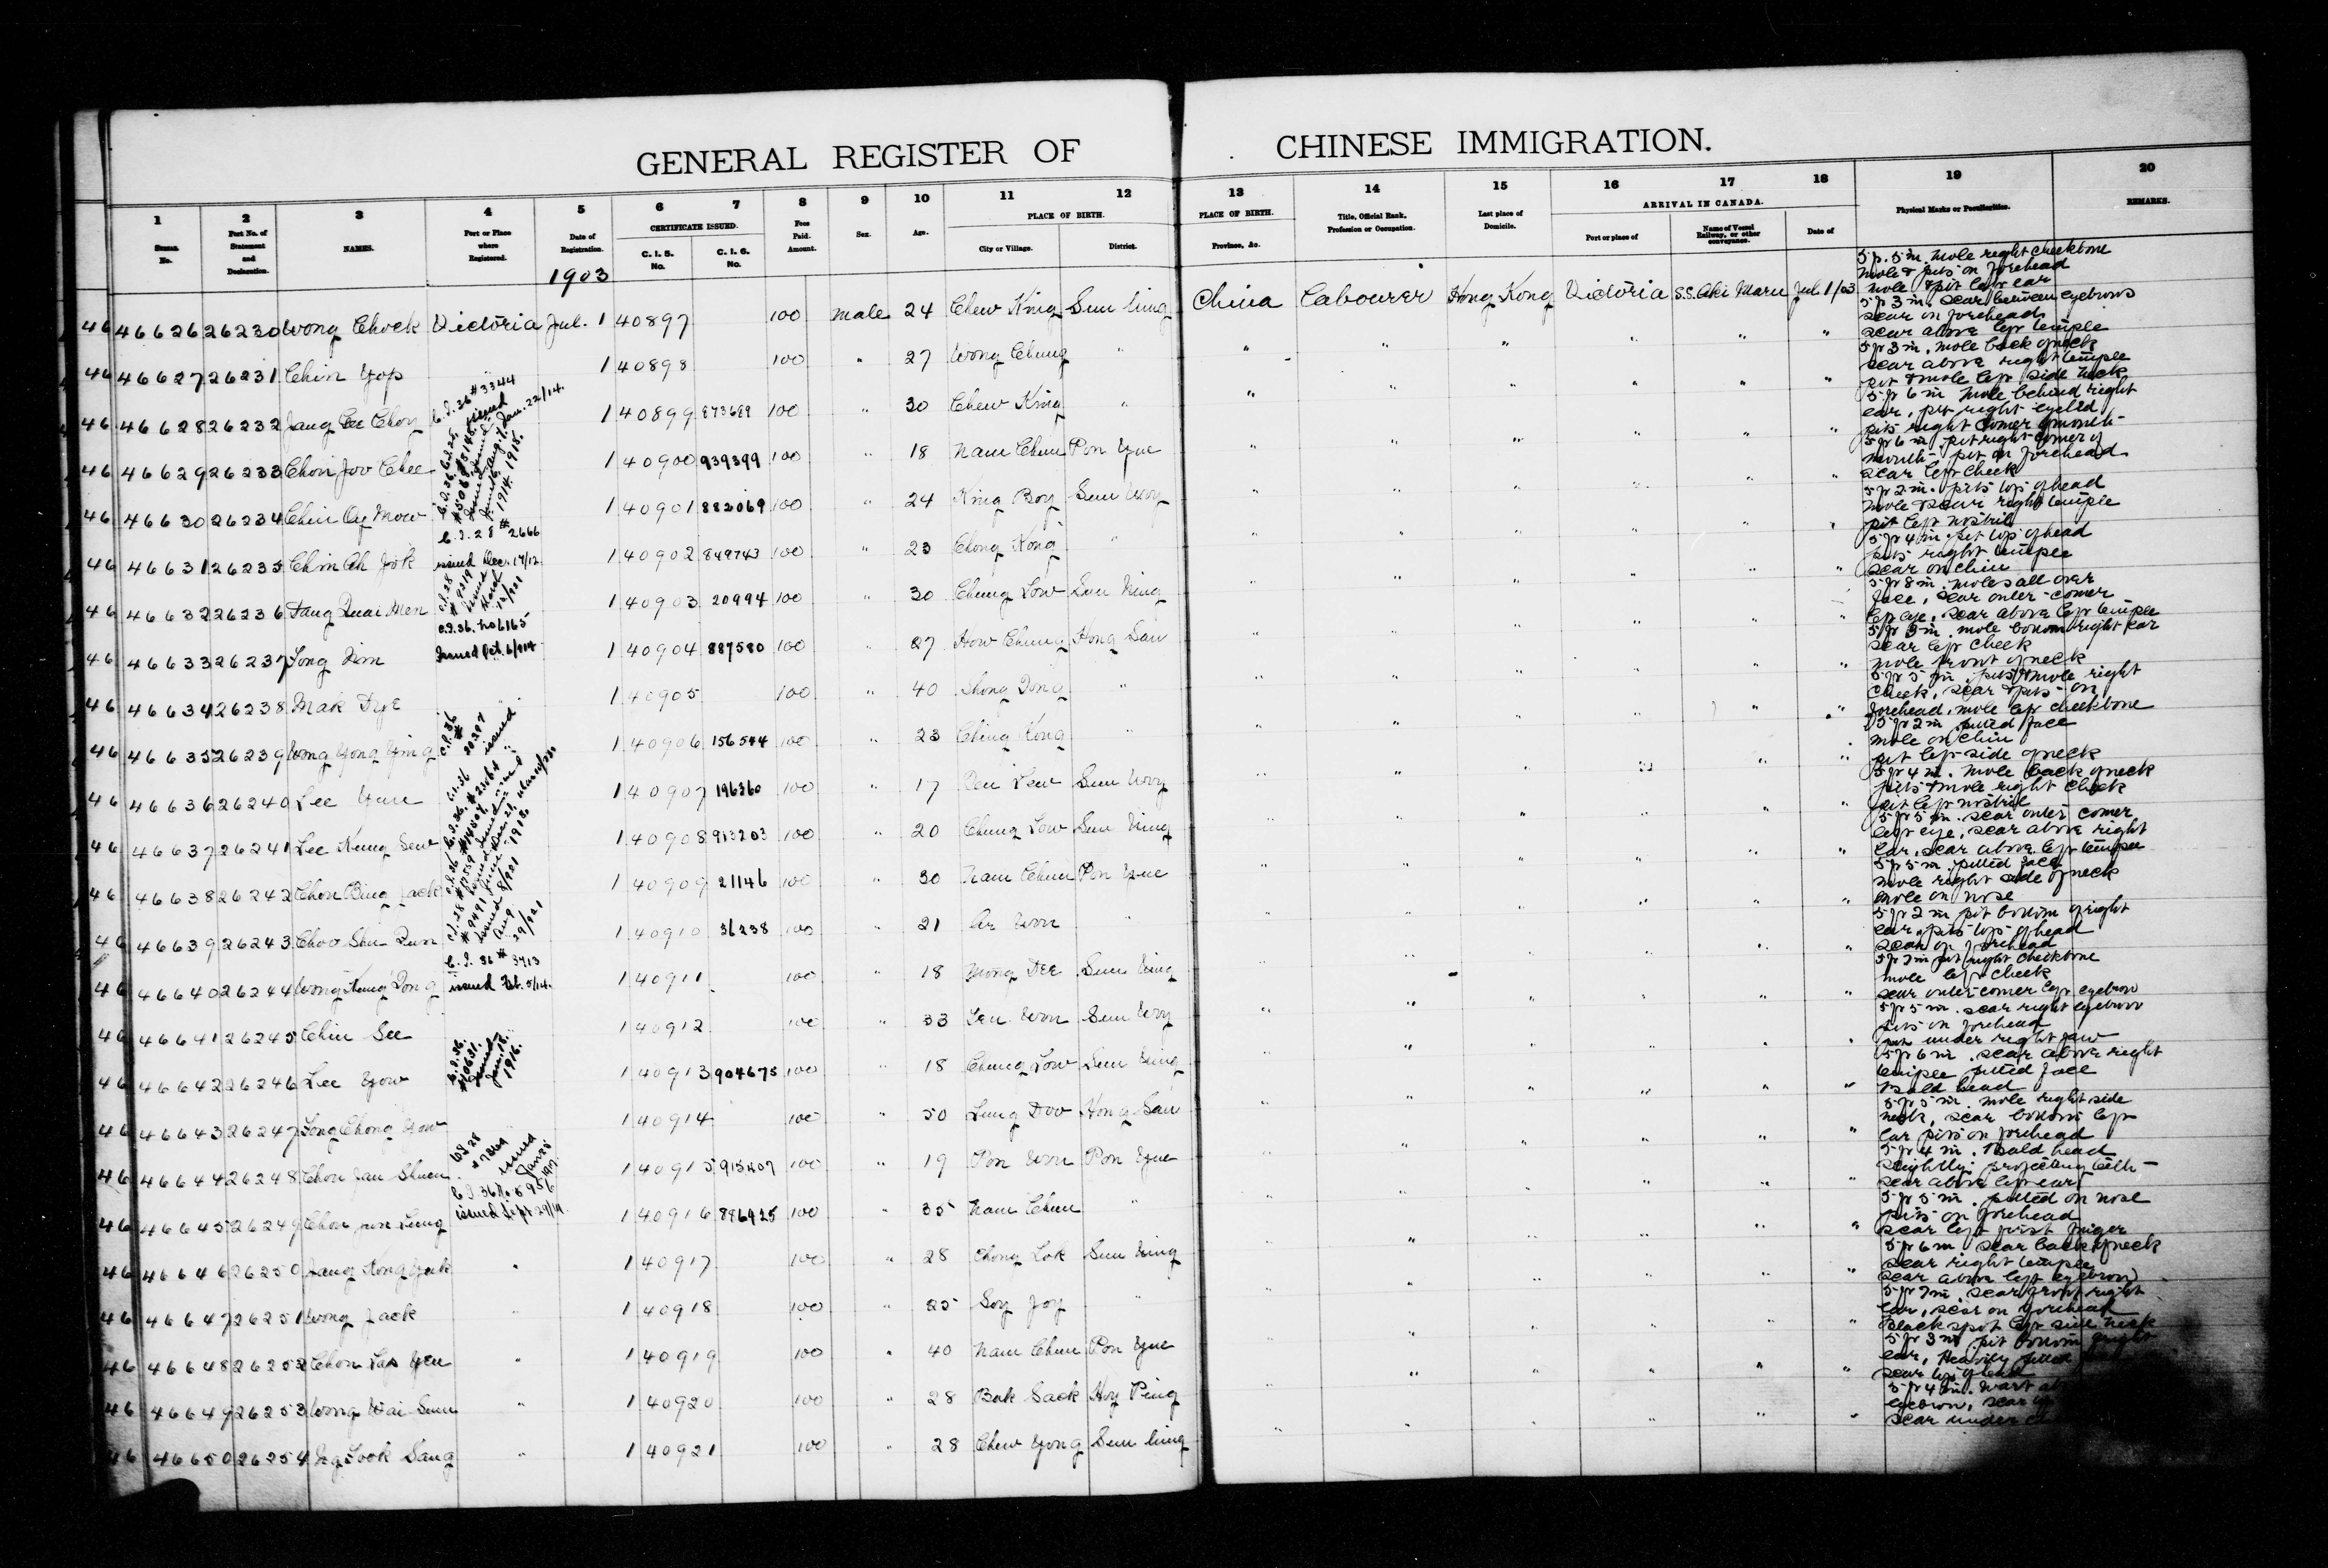 GENERAL REGISTER OF CHINESE IMMIGRATION.
1 2 3 4 5 6 7 8 9 10 11 12 13 14 15 16 17 18 19 20
CERTIFICATE ISSUED. PLACE OF BIRTH. PLACE OF BIRTH. ARRIVAL IN CANADA.
Serial No. Port No. of Statement and Declaration. NAMES. Port or Place where Registered. Date of Registration. C. I. 5. No. C. I. 6. No. Fees Paid. Amount. Sex. Age. City or Village. District. Province, &c. Title, Official Rank, Profession or Occupation. Last place of Domicile. Port or place of Name of Vessel Railway, or other conveyance. Date of Physical Marks or Peculiarities. REMARKS.
1903
46 46626 26230 Wong Chock Victoria Jul. 1 40897 100 male 24 Chew King Sun Ning China Labourer Hong Kong Victoria S.S. Aki Maru Jul. 1/03 5 ft 5 in. mole right cheekbone
mole & pits on forehead
mole & pit left ear
46 46627 26231 Chin Yop 1 40898 100 " 27 Wong Chung " " " " " " " 5 ft 3 in. scar between eyebrows
scar on forehead
scar above left temple
46 46628 26232 C.I. 36 #3344 issued Jan. 22/14. 1 40899 873689 100 " 30 Chew King " " " " " " " 5 ft 3 in. mole back of neck
scar above right temple
pit & mole left side neck
46 46629 26233 Chon Joo Chee 1 40900 939399 100 " 18 Nam Chun Pon Yue " " " " " " 5 ft 6 in mole behind right
ear, pit right eyelid
pits right corner mouth
46 46630 26234 Chin Oy Mow 1 40901 882069 100 " 24 King Boy Sun Woy " " " " " " 5 ft 6 in. pit right corner of
mouth. pit on forehead
scar left cheek
46 46631 26235 Chin Ah Jok C.I. 28 #2666 issued Dec. 17/12 1 40902 849743 100 " 23 Chong Kong " " " " " " " 5 ft 2 in. pits top of head
mole & scar right temple
pit left nostril
46 46632 26236 Fang Quai Men 1 40903 20994 100 " 30 Chung Low Sun Ning " " " " " " 5 ft 4 in. pit top of head
pits right temple
scar on chin
46 46633 26237 Song Kim C.I. 36. No 6165 Issued Oct. 6/914 1 40904 887580 100 " 27 How Chung Hong San " " " " " " 5 ft 8 in. moles all over
face, scar outer corner
left eye, scar above left temple
46 46634 26238 Mak Dye 1 40905 100 " 40 Shong Dong " " " " " " " mole bottom right ear
scar left cheek
mole front of neck
46 46635 26239 Wong Yong Ying C.I. 36 # 20297 issued 1 40906 156544 100 " 23 Ching Kong " " " " " " " 5 ft 5 in. pits & mole right
cheek, scar & pits on
forehead, mole left cheekbone
46 46636 26240 Lee Yune 1 40907 196360 100 " 17 Sun Woy " " " " " " 5 ft 2 in pitted face
mole on chin
pit left side of neck
46 46637 26241 Lee Kung Sew 1 40908 913203 100 " 20 Chung Low Sun Ning " " " " " " 5 ft 4 in. mole back of neck
pits & mole right cheek
pit left nostril
46 46638 26242 Chon Bing Jack 1 40909 21146 100 " 30 Nam Chun Pon Yue " " " " " " 5 ft 5 in. scar outer corner
left eye, scar above right
ear, scar above left temple
46 46639 26243 Choo Shu Qun 1 40910 36238 100 " 21 Ar Won " " " " " " " 5 ft 5 in. pitted face
mole right side of neck
mole on nose
46 46640 26244 Wong Kung Dong C.I. 36 # 3413 issued Feb. 5/14. 1 40911 100 " 18 Mong Dee Sun Ning " " " " " " 5 ft 2 in pit bottom of right
ear, pits top of head
scar on forehead
46 46641 26245 Chin See 1 40912 100 " 33 Sun Woy " " " " " " pit right cheekbone
mole left cheek
scar outer corner left eyebrow
46 46642 26246 Lee Yow C.I. 36. #10631. Issued Jan. 18. 1916. 1 40913 904675 100 " 18 Chung Low Sun Ning " " " " " " 5 ft 5 in. scar right eyebrow
pits on forehead
pit under right jaw
46 46643 26247 Song Chong Yow 1 40914 100 " 50 Lung Doo Hong San " " " " " " 5 ft 6 in. scar above right
temple pitted face
Bald head
46 46644 26248 Chon Jan Shuen 1 40915 915407 100 " 19 Pon Won Pon Yue " " " " " " 5 ft 5 in. mole right side
neck, scar bottom left
ear pits on forehead
46 46645 26249 C.I. 36 No 5956 issued Sept. 29/14. 1 40916 886925 100 " 35 Nam Chun " " " " " " " 5 ft 4 in. Bald head
slightly projecting teeth
scar above left ear
46 46646 26250 Jang Kong Yuk " 1 40917 100 " 28 Chong Lok Sun Ning " " " " " " 5 ft 5 in. pitted on nose
pits on forehead
scar left first finger
46 46647 26251 Wong Jack " 1 40918 100 " 25 Soy Joy " " " " " " " 5 ft 6 in. scar back of neck
scar right temple
scar above left eyebrow
46 46648 26252 Chon Lap Yeu " 1 40919 100 " 40 Nam Chun Pon Yue " " " " " " 5 ft 7 in. scar front right
ear, scar on forehead
Black spot left side neck
46 46649 26253 Wong Wai Sun " 1 40920 100 " 28 Bak Sack Hoy Ping " " " " " " 5 ft 3 in. pit bottom right
ear, Heavily pitted
scar top of head
46 46650 26254 Ng Sook Sang " 1 40921 100 " 28 Chew Yong Sun Ning " " " " " " 5 ft 4 in. wart
eyebrow, scar
scar under